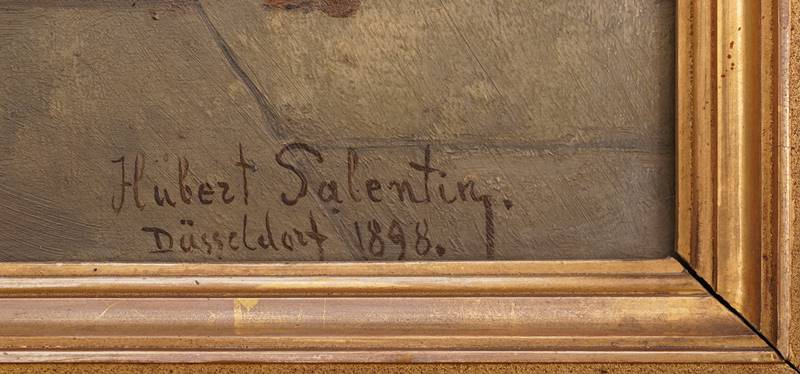 Hubert Salentin.
Düsseldorf 1898.